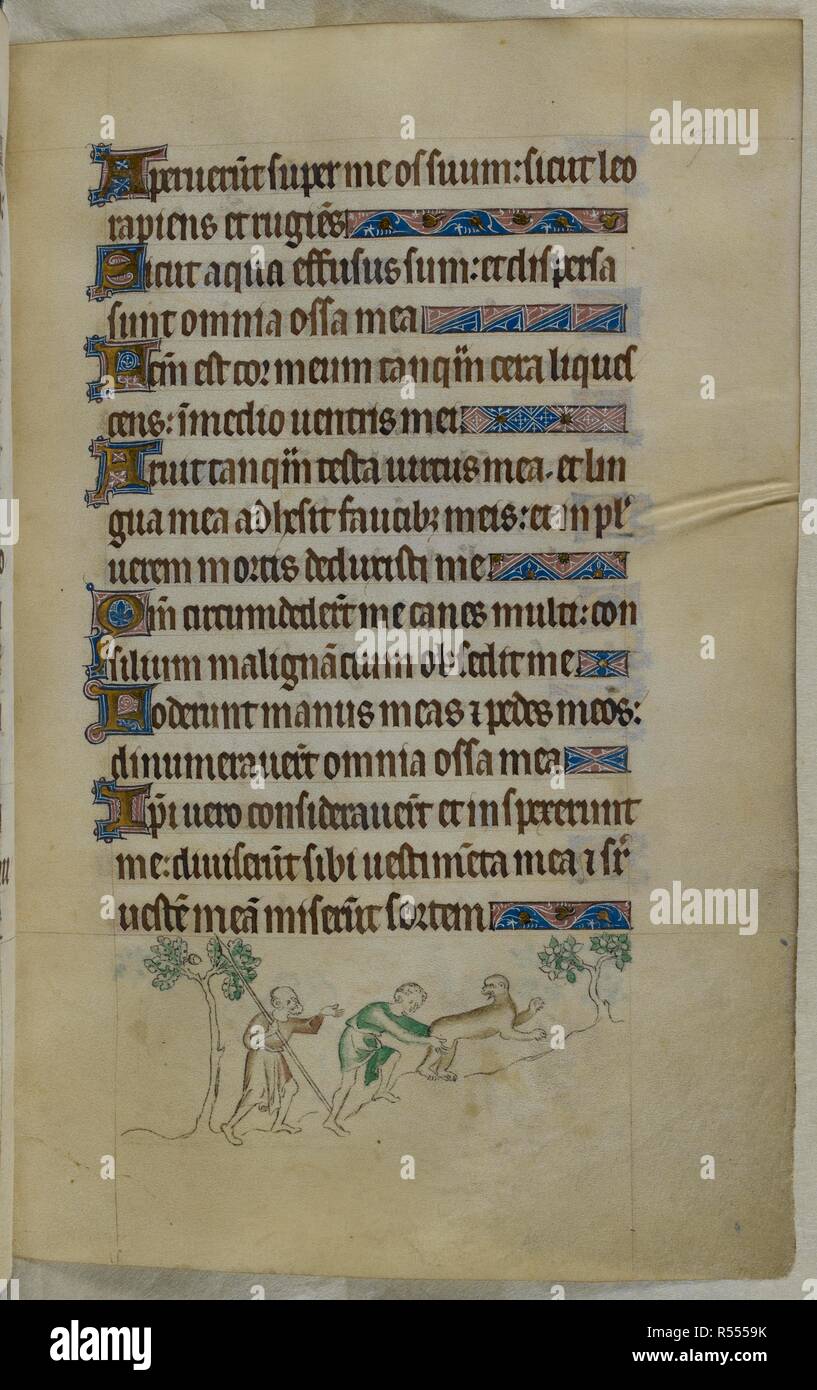 Aperuerūt super me os suum: sicut leo
rapiens et rugiēs
Sicut aqua effusus sum: et dispersa
sunt omnia ossa mea
Factm̄ est cor meum tanqm̄ cera liques
cens: ī medio uentris mei
Aruit tanqm̄ testa uirtus mea. et lin
gua mea adhesit faucibꝫ meis: et in pl'
uerem mortis deduxisti me
Qm̄ circumdeder̄t me canes multi: con
silium malignācium obsedit me
Foderunt manus meas ⁊ pedes meos:
dinumerauer̄t omnia ossa mea
Ip̄i uero considerauer̄t et inspexerunt
me: diuiserūt sibi uestimēta mea ⁊ sr̄
uestē meā miserūt sortem
alamy
a
Image ID: R5559K
www.alamy.com